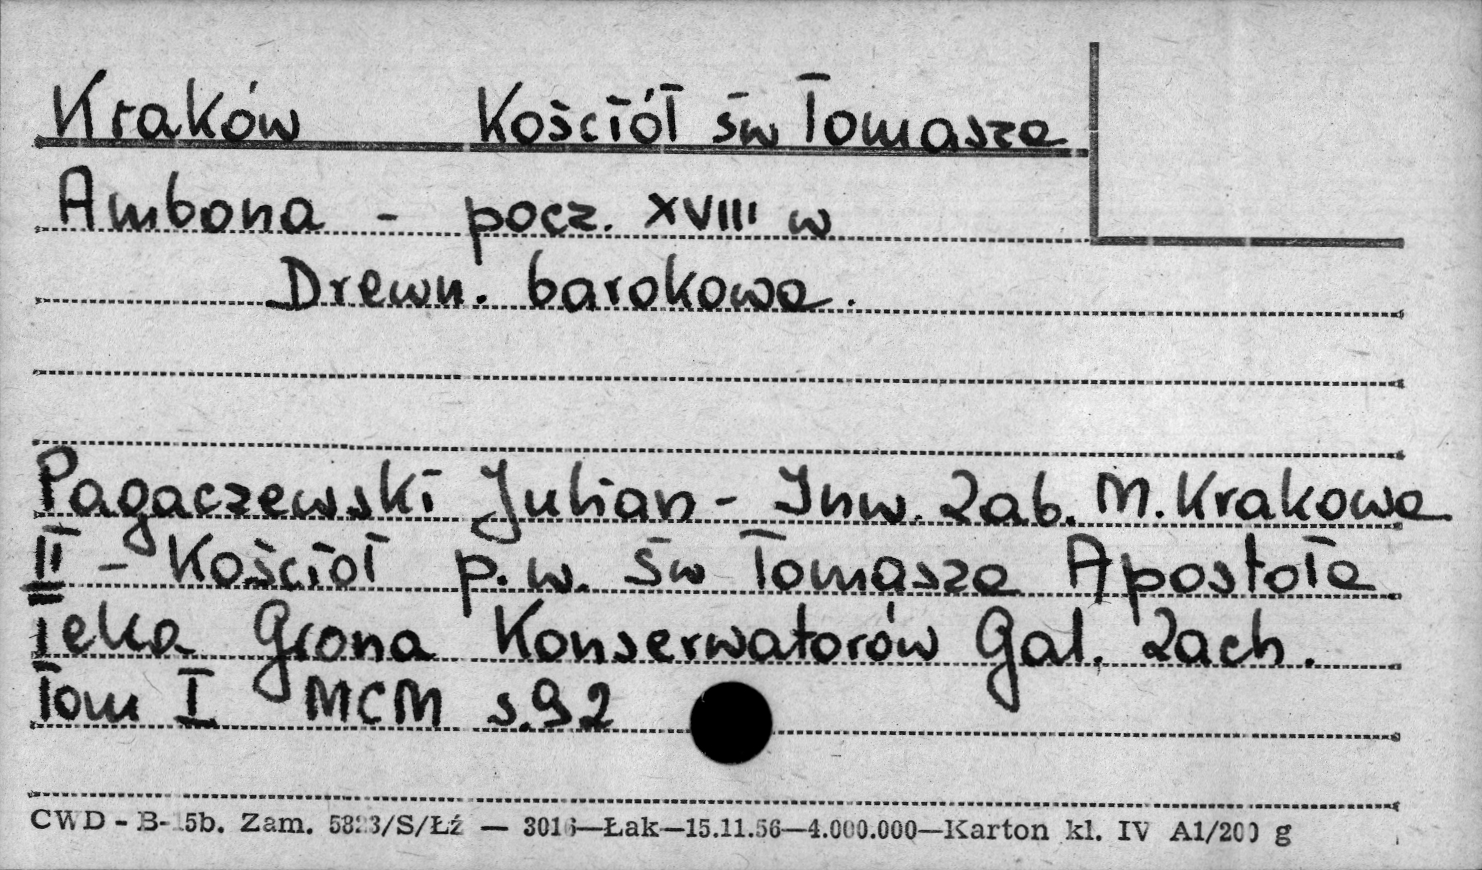 Kraków Kościół św Tomasza
Ambona - pocz. XVIII w
Drewn. barokowa.
Pagaczewski Julian - Inw. Zab. M. Krakowa
II - Kościół p.w. Św Tomasza Apostoła
Teka Grona Konserwatorów Gal. Zach.
Tom I MCM s.92
CWD - B- 5b. Zam. 5823/S/Łź — 3016—Łak—15.11.56—4.000.000—Karton kl. IV A1/200 g